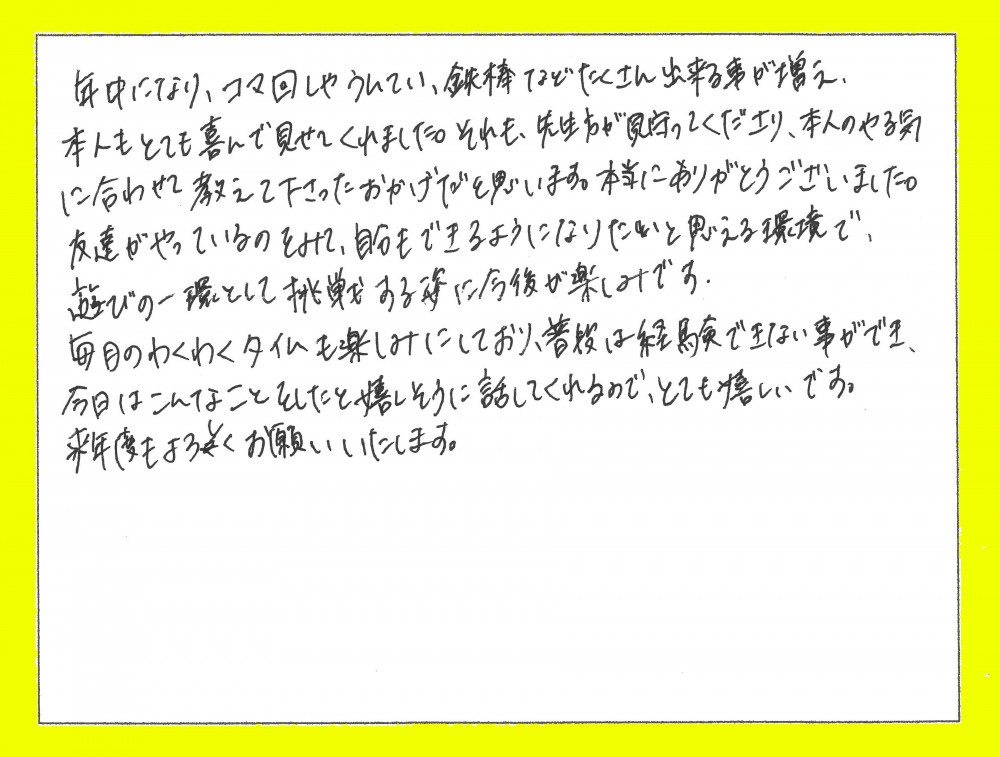 年中になり、コマ回しやうんてい、鉄棒などたくさん出来る事が増え、
本人もとても喜んで見せてくれました。それも、先生方が見守ってくださり、本人のやる気
に合わせて教えて下さったおかげだと思います。本当にありがとうございました。
友達がやっているのをみて、自分もできるようになりたいと思える環境で、
遊びの一環として挑戦する姿に今後が楽しみです.
毎日のわくわくタイムも楽しみにしており、普段は経験できない事ができ、
今日はこんなことをしたと嬉しそうに話してくれるので、とても嬉しいです。
来年度もよろしくお願いいたします。